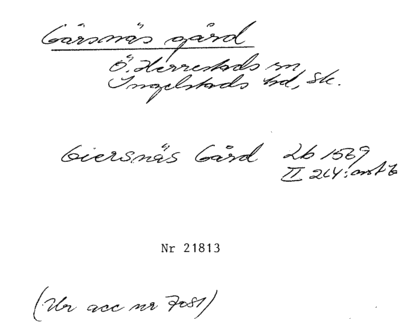 Gärsnäs gård
Ö. Herrestads sn
Ingelstads hd, Sk.
Giersnäs Gård Lb 1569
II 214:
Nr 21813
(Ur acc nr 7081)